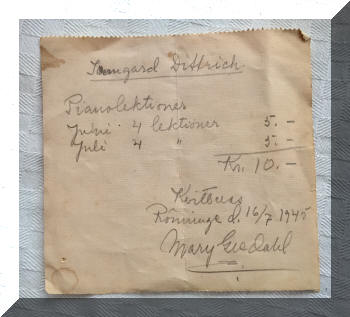 Irmgard Dittrich
Pianolektioner
Juni 4 lektioner 5.-
Juli 4 " 5.-
Kr. 10.-
Kvitteras
Rönninge d. 16/7 1945
Mary